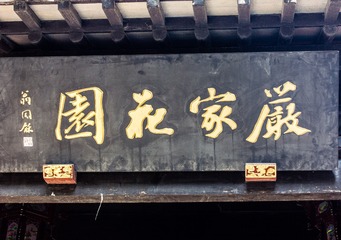 嚴家花園
翁同龢